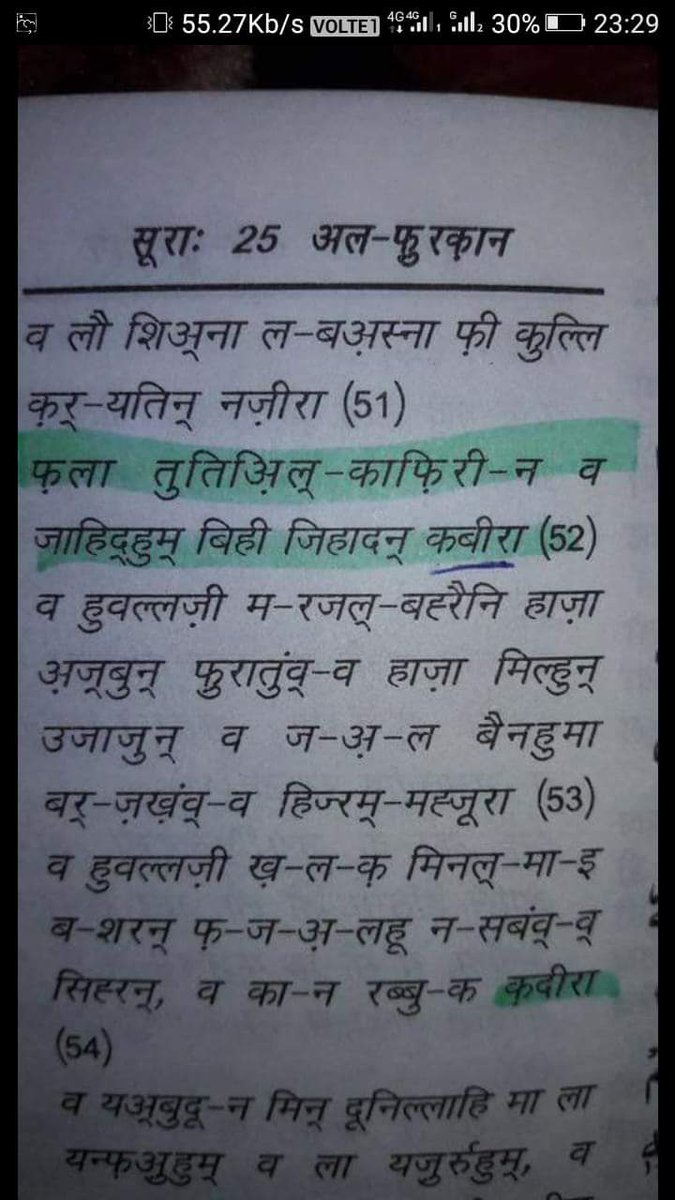 55.27Kb/s VOLTE1 4G 4G 1 G 2 30% 23:29
सूराः 25 अल-फ़ुरक़ान
व लौ शिअ्ना ल-बअ़स्ना फ़ी कुल्लि
क़र्-यतिन् नज़ीरा (51)
फ़ला तुतिअ़िल्-काफ़िरी-न व
जाहिद्हुम् बिही जिहादन् कबीरा (52)
व हुवल्लज़ी म-रजल्-बह्रैनि हाज़ा
अ़ज़्बुन् फ़ुरातुंव्-व हाज़ा मिल्हुन्
उजाजुन् व ज-अ़-ल बैनहुमा
बर्-ज़ख़ंव्-व हिज्रम्-मह्जूरा (53)
व हुवल्लज़ी ख़-ल-क़ मिनल्-मा-इ
ब-शरन् फ़-ज-अ़-लहू न-सबंव्-व्
सिह्रन्, व का-न रब्बु-क क़दीरा
(54)
व यअ्बुदू-न मिन् दूनिल्लाहि मा ला
यन्फ़अुहुम् व ला यज़ुर्रुहुम्, व